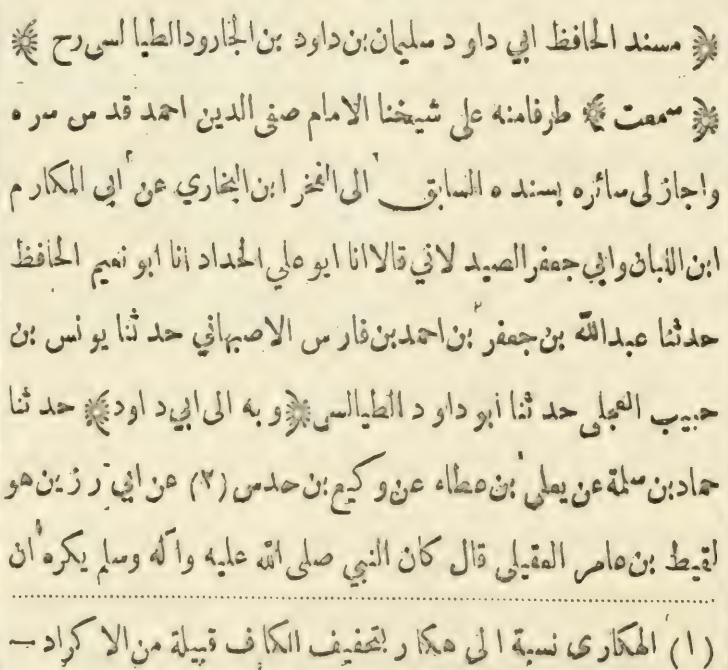 ﴿ مسند الحافظ ابي داود سليمان بن داود بن الجارود الطيالسي رح ﴾
﴿ سمعت ﴾ طرفا منه على شيخنا الامام صفي الدين احمد قدس سره
واجاز لى سائره بسنده السابق الى الفخر ابن البخاري عن ابي المكارم
ابن اللبان وابي جعفر الصيدلاني قالا انا ابو علي الحداد انا ابو نعيم الحافظ
حدثنا عبدالله بن جعفر بن احمد بن فارس الاصبهاني حدثنا يونس بن
حبيب العجلي حدثنا أبو داود الطيالسي ﴿ وبه الى ابي داود ﴾ حدثنا
حماد بن سلمة عن يعلى بن عطاء عن وكيع بن حدس (٢) عن ابي رزين هو
لقيط بن عامر العقيلي قال كان النبي صلى الله عليه وآله وسلم يكره ان
(١) الهكارى نسبة الى هكار بتخفيف الكاف قبيلة من الاكراد –